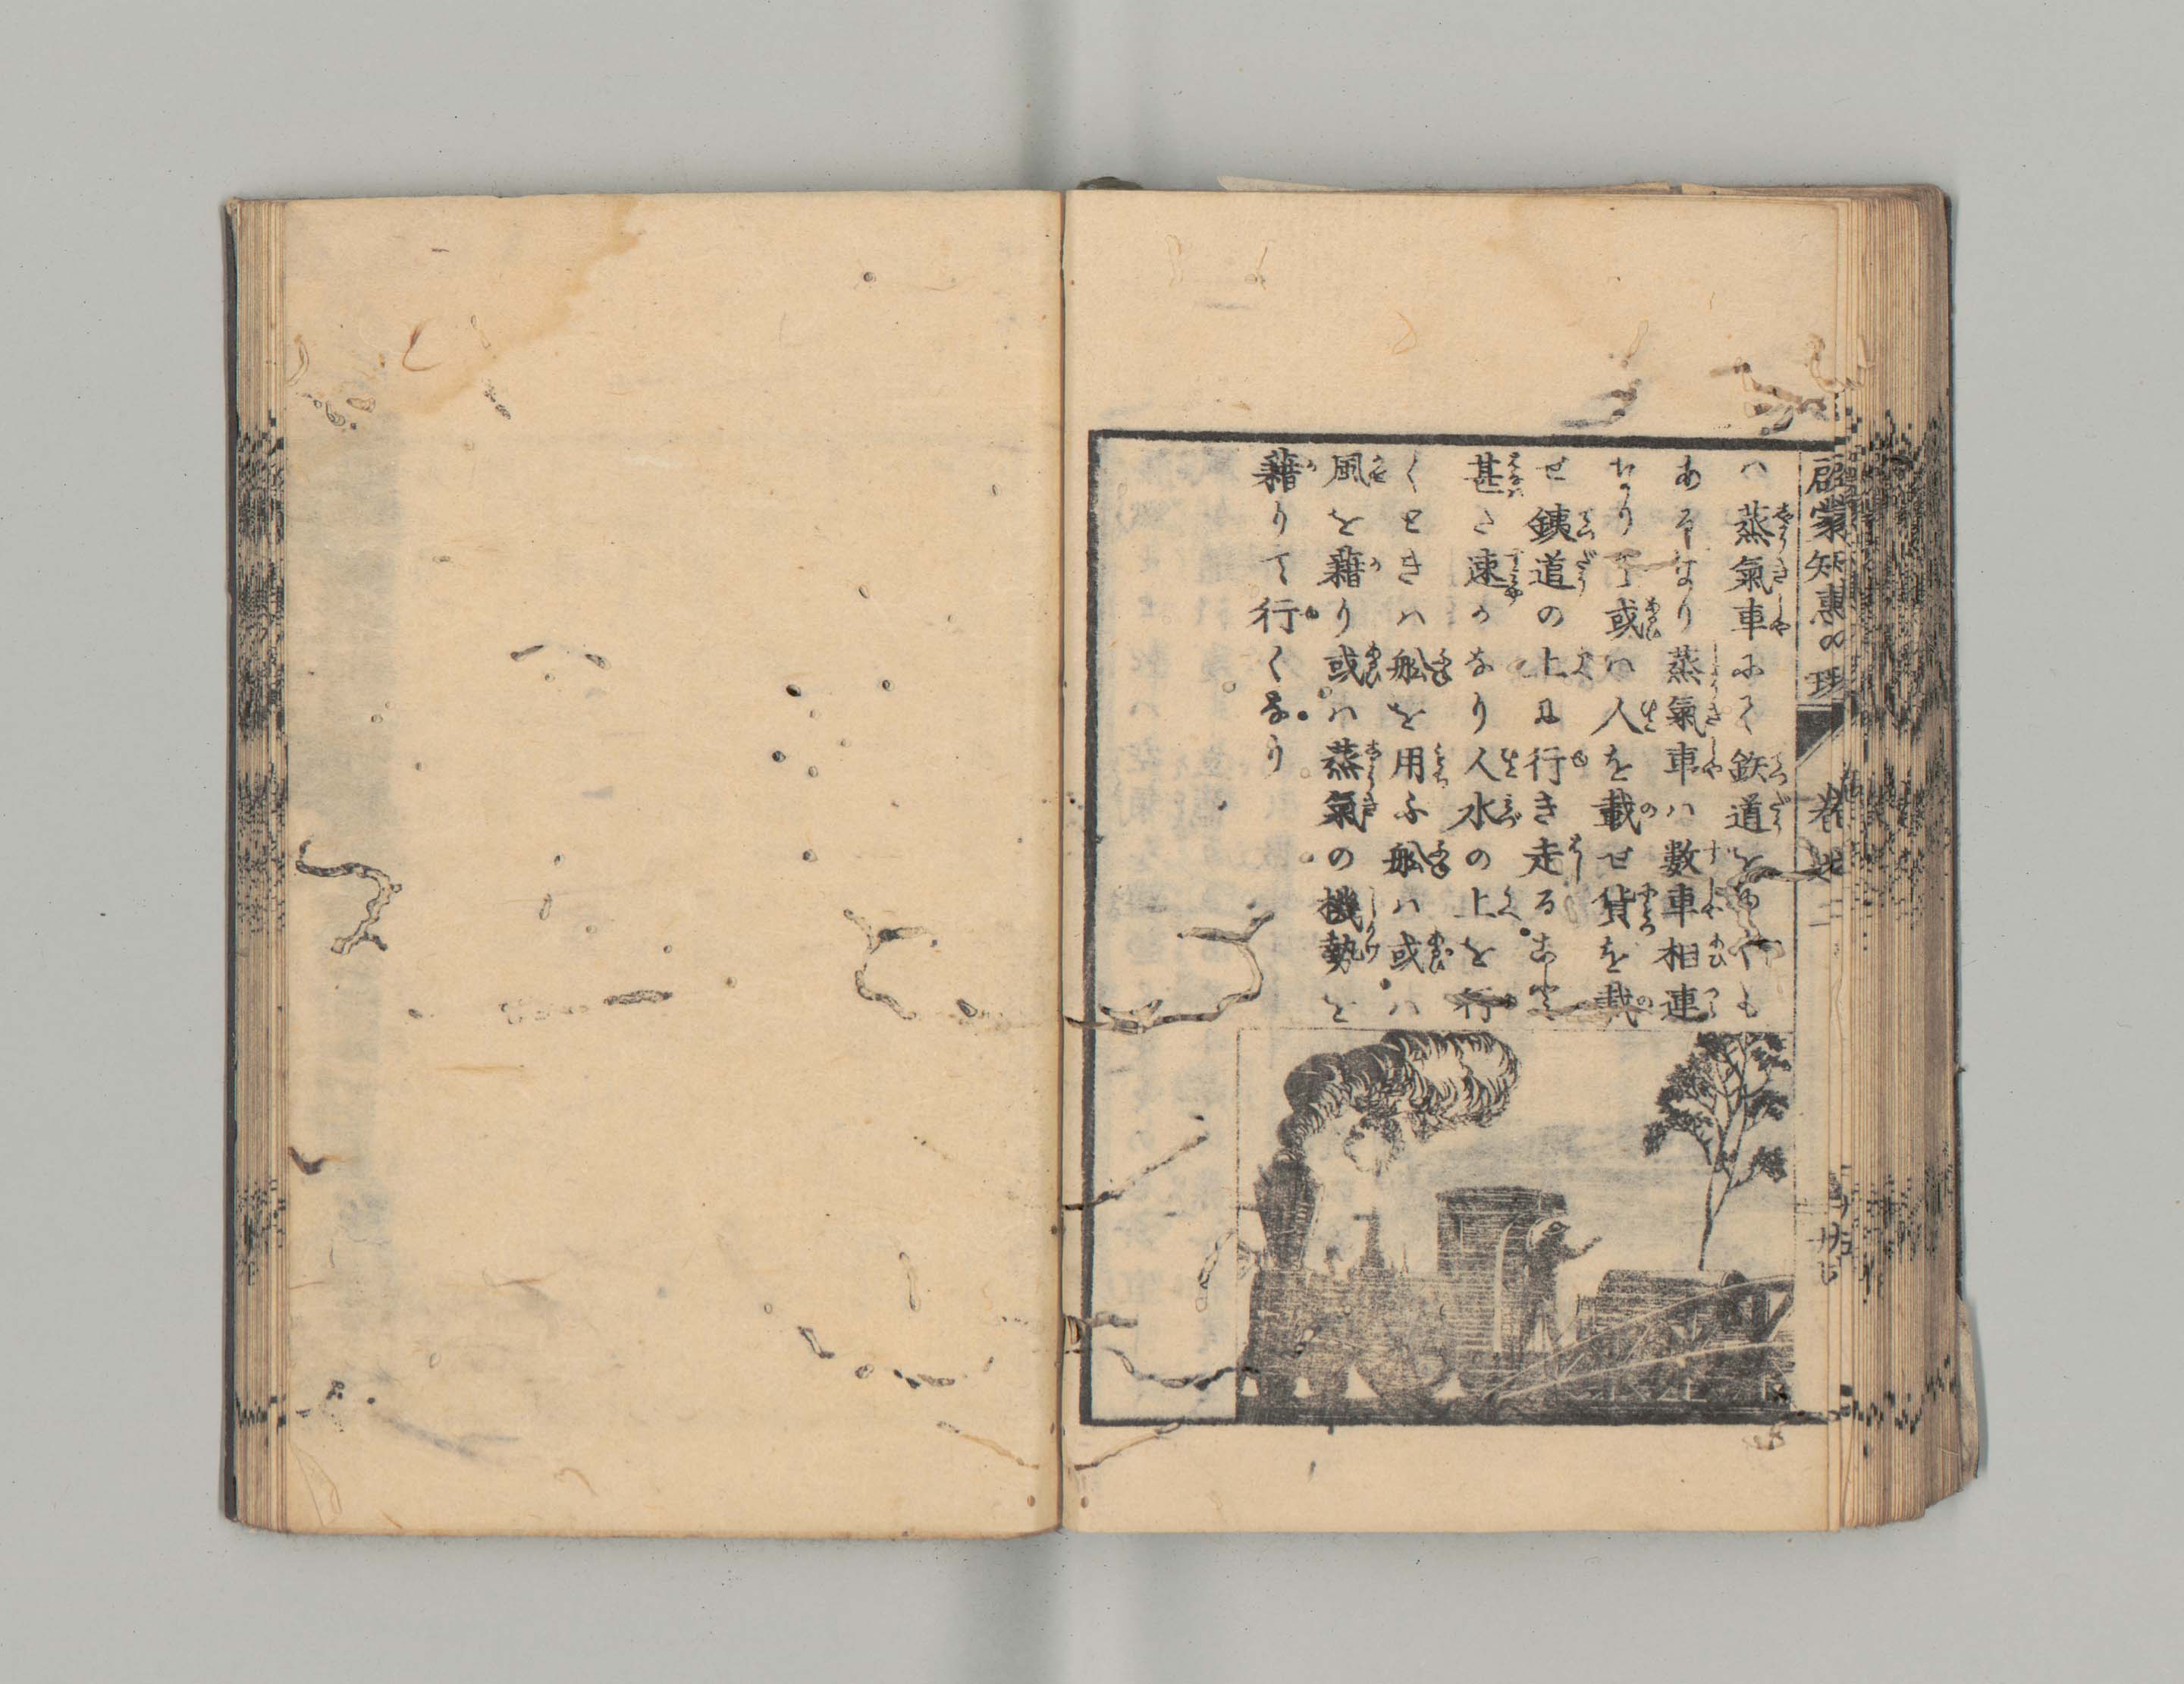 啓蒙知恵の環 巻之二
ハ蒸氣車にて鉄道をゆくも
あるなり蒸氣車ハ数車相連
なりて或ハ人を載せ貨を載
せ銕道の上に行き走ること
甚だ速かなり人水の上を行
くときハ舩を用ふ舩ハ或ハ
風を藉り或ハ蒸氣の機勢を
藉りて行くなり